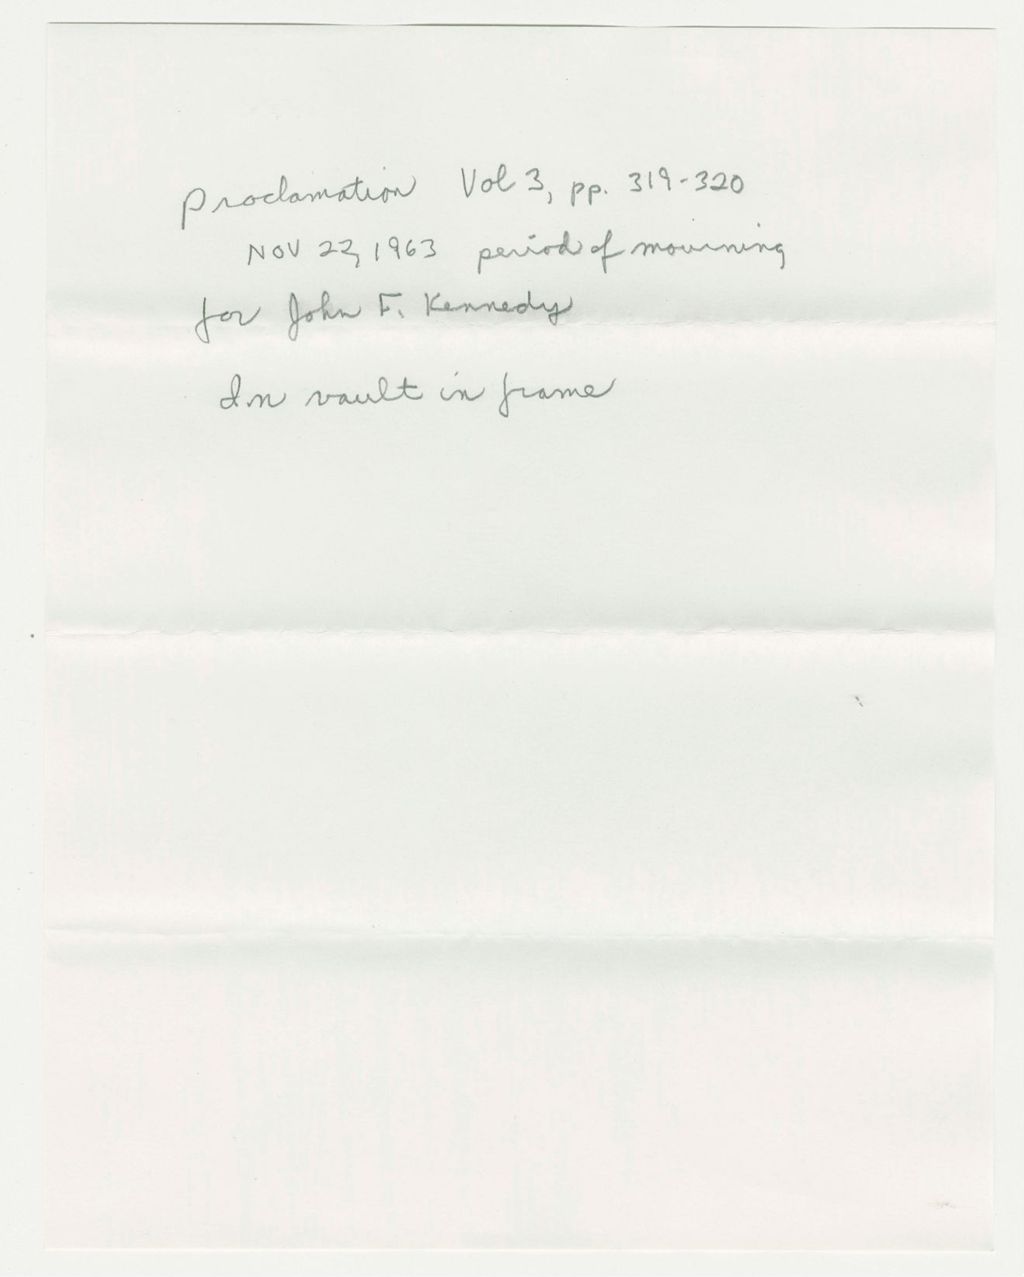 Proclamation Vol 3, pp. 319-320
NOV 22, 1963 period of mourning
for John F. Kennedy
In vault in frame